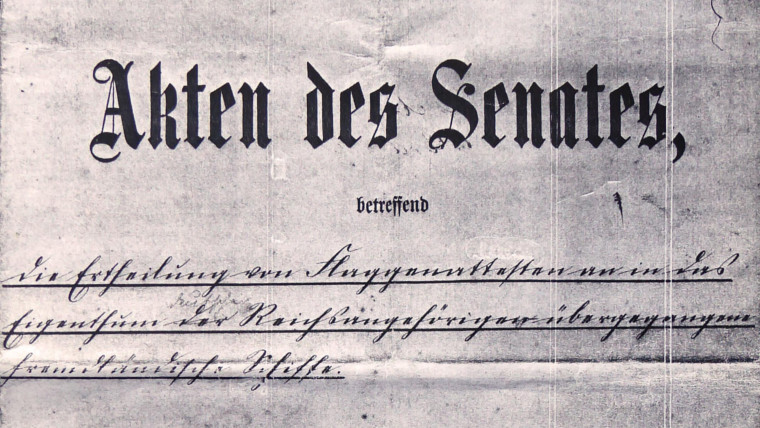 Akten des Senates,
betreffend
die Ertheilung von Flaggenattesten an in das
Eigenthum der Reichsangehörigen übergegangene
fremdländische Schiffe.